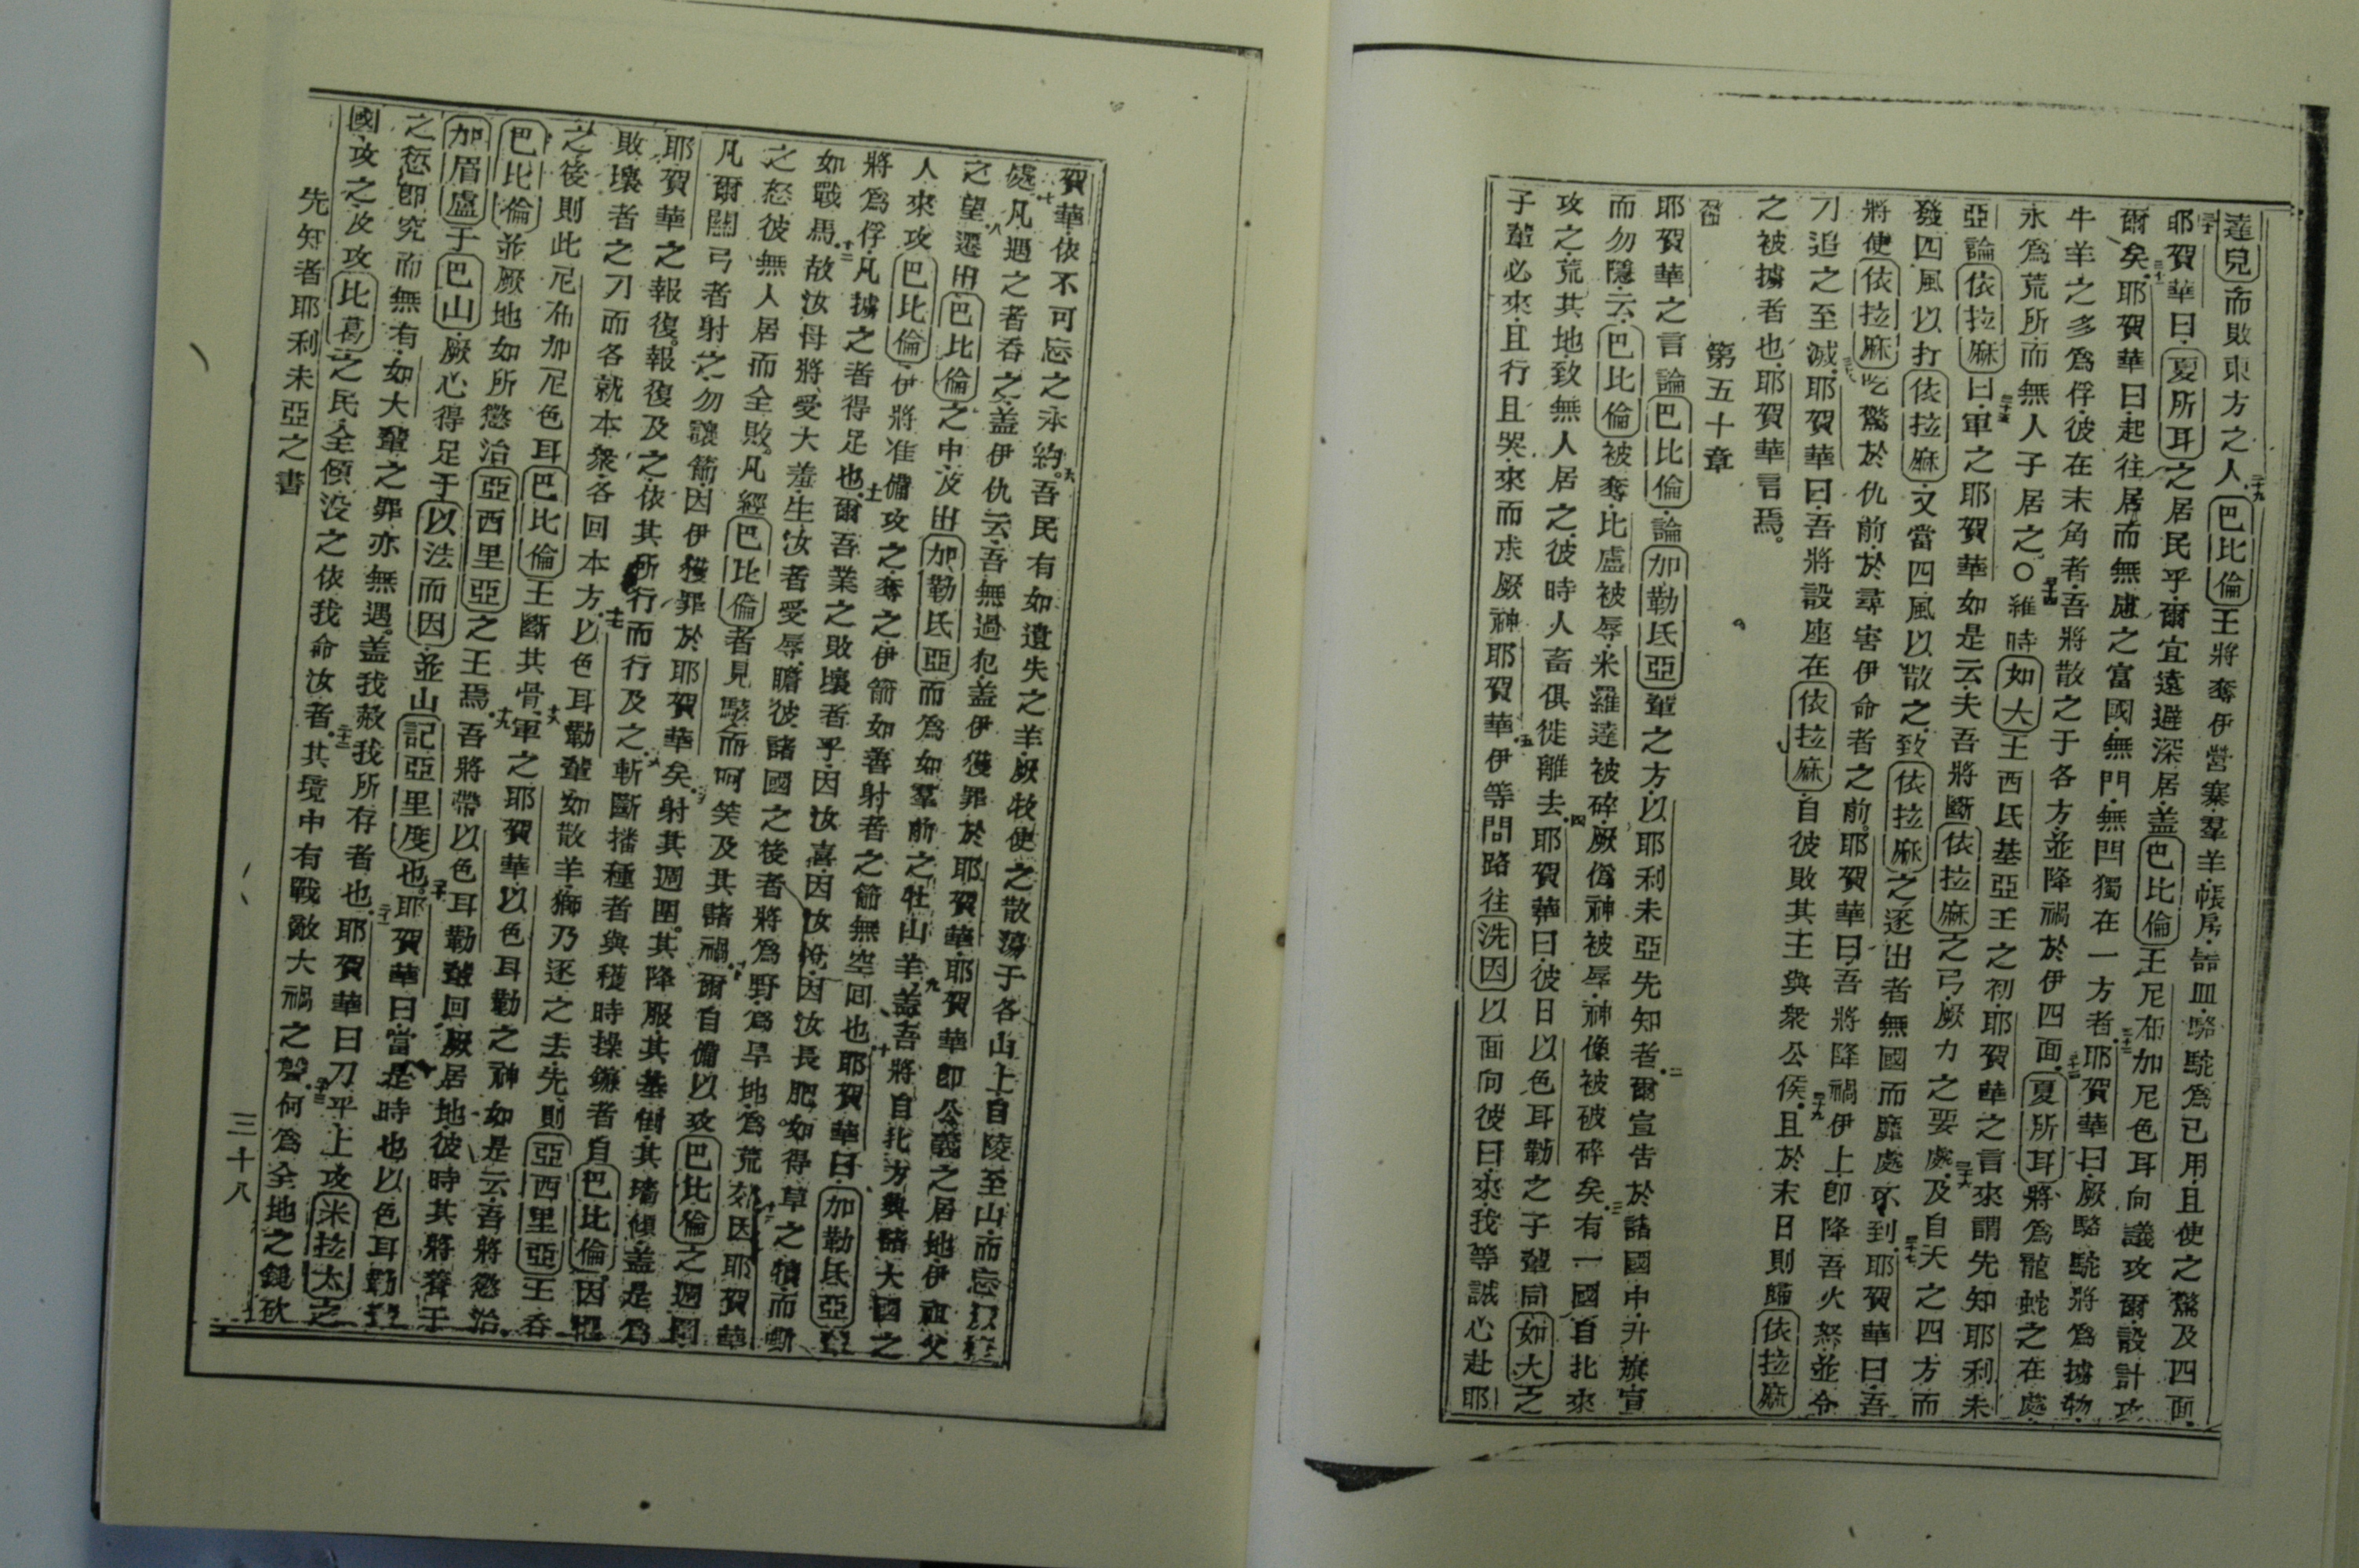 達兒而敗東方之人二十九巴比倫王將奪伊營寨羣羊帳房器皿駱駝爲已用且使之驚及四面
三十耶賀華曰夏所耳之居民乎爾宜遠避深居蓋巴比倫王尼布加尼色耳向議攻爾設計攻
爾矣三十一耶賀華曰起往居而無慮之富國無門無閂獨在一方者三十二耶賀華曰厥駱駝將爲擄物
牛羊之多爲俘彼在末角者吾將散之于各方並降禍於伊四面三十三夏所耳將爲龍蛇之在處
永爲荒所而無人子居之〇三十四維時如大王西氐基亞王之初耶賀華之言來謂先知耶利未
亞論依拉麻曰三十五軍之耶賀華如是云夫吾將斷依拉麻之弓厥力之要處三十六及自天之四方而
發四風以打依拉麻又當四風以散之致依拉麻之逐出者無國而靡處不到三十七耶賀華曰吾
將使依拉麻吃驚於仇前於尋害伊命者之前耶賀華曰吾將降禍伊上即降吾火怒並令
刀追之至滅三十八耶賀華曰吾將設座在依拉麻自彼敗其王與衆公侯三十九且於末日則歸依拉麻
之被擄者也耶賀華言焉
第五十章
耶賀華之言論巴比倫論加勒氐亞輩之方以耶利未亞先知者二爾宣告於諸國中升旗宣
而勿隱云巴比倫被奪比盧被辱米羅達被碎厥偽神被辱神像被破碎矣三有一國自北來
攻之荒其地致無人居之彼時人畜俱徙離去四耶賀華曰彼日以色耳勒之子輩同如大之
子輩必來且行且哭來而求厥神耶賀華五伊等問路往洗因以面向彼曰來我等誠心赴耶
賀華依不可忘之永約六吾民有如遺失之羊厥牧使之散蕩于各山上自陵至山而忘
處七凡遇之者吞之蓋伊仇云吾無過犯蓋伊獲罪於耶賀華耶賀華即公義之居地伊祖父
之望八遷出巴比倫之中及出加勒氐亞而爲如羣前之牡山羊九蓋吾將自北方與諸大國之
人來攻巴比倫伊將准備攻之奪之伊箭如善射者之箭無空回也十耶賀華曰加勒氐亞
將爲俘凡擄之者得足也十一爾吾業之敗壞者乎因汝喜因汝悅因汝長肥如得草之犢而
如戰馬十二故汝母將受大羞生汝者受辱瞻彼諸國之後者將爲野爲旱地爲荒郊十三因耶賀華
之怒彼無人居而全敗凡經巴比倫者見駭而呵笑及其諸禍十四爾自備以攻巴比倫之週圍
凡爾關弓者射之勿讓箭因伊獲罪於耶賀華矣十五射其週圍其降服其基倒其墻傾蓋是爲
耶賀華之報復報復及之依其所行而行及之十六斬斷播種者與穫時操鐮者自巴比倫因
敗壞者之刀而各就本衆各回本方十七以色耳勒輩如散羊獅乃逐之去先則亞西里亞王吞
之後則此尼布加尼色耳巴比倫王斷其骨十八軍之耶賀華以色耳勒之神如是云吾將懲治
巴比倫並厥地如所懲治亞西里亞之王焉十九吾將帶以色耳勒輩回厥居地彼時其將養于
加眉盧于巴山厥心得足于以法而因並山記亞里度也二十耶賀華曰當是時也以色耳勒
之愆即究而無有如大輩之罪亦無遇蓋我赦我所存者也二十一耶賀華曰刀乎上攻米拉太之
國攻之及攻比葛之民全傾没之依我命汝者二十二其境中有戰敵大禍之聲二十三何爲全地之鎚砍
先知者耶利未亞之書
三十八